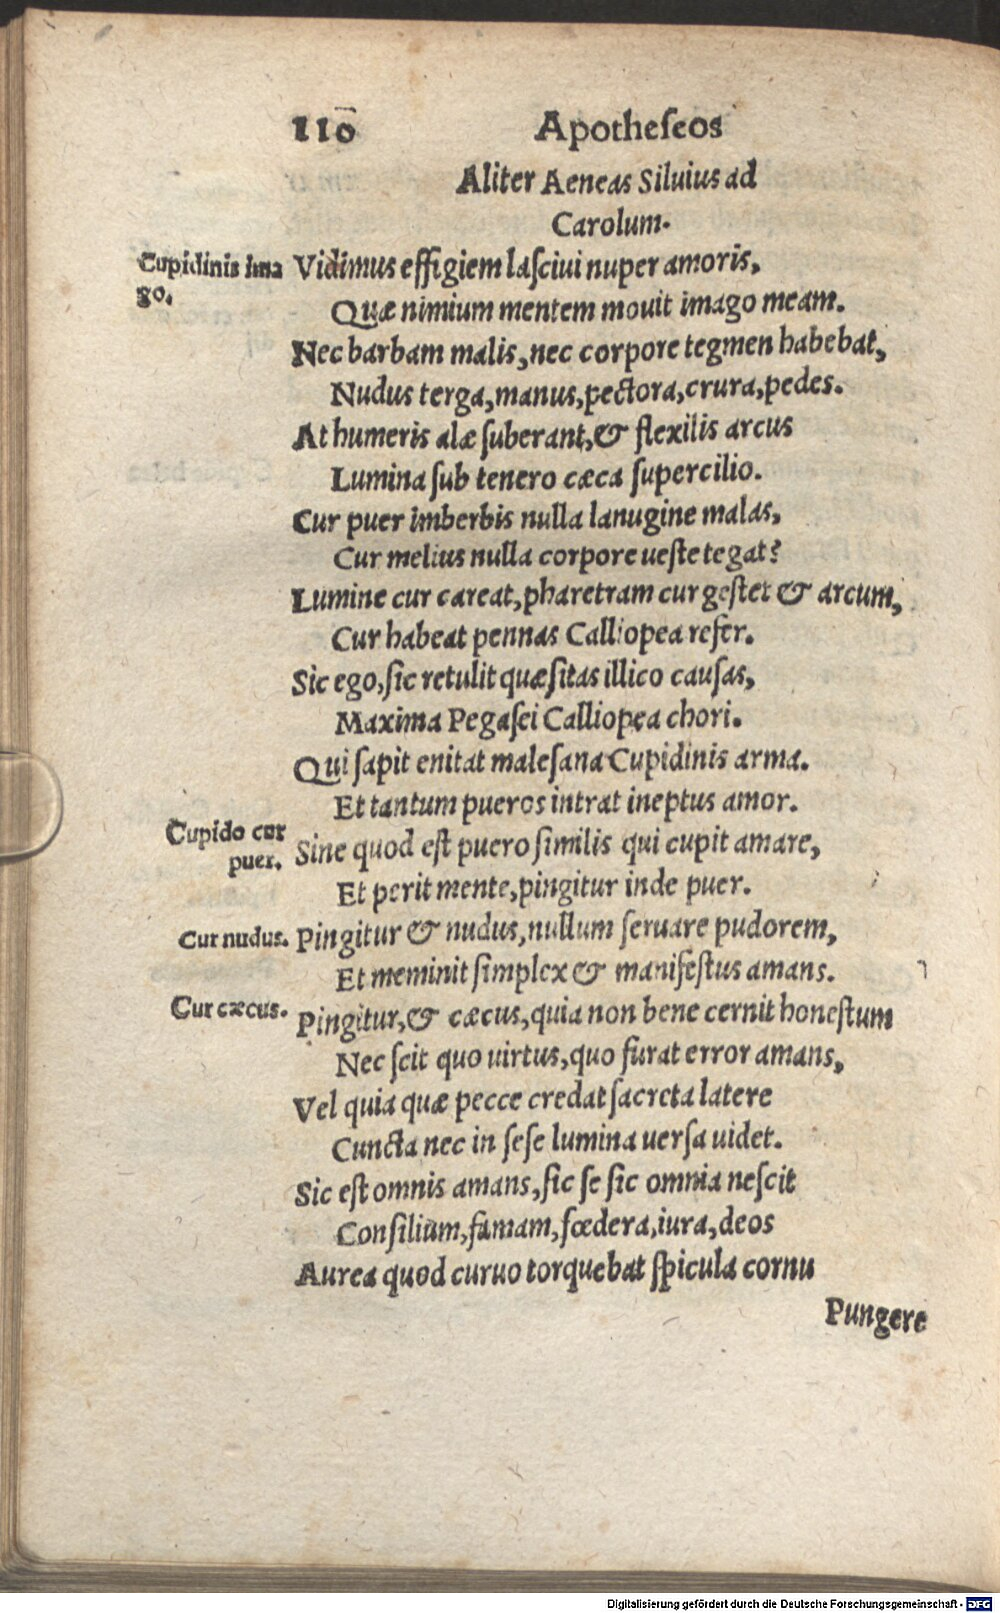 110 Apotheseos
Aliter Aeneas Siluius ad
Carolum.
Cupidinis ima
go.
Vidimus effigiem laſciui nuper amoris,
Quæ nimium mentem mouit imago meam.
Nec barbam malis, nec corpore tegmen habebat,
Nudus terga, manus, pectora, crura, pedes.
At humeris alæ ſuberant, & flexilis arcus
Lumina ſub tenero cæca ſupercilio.
Cur puer imberbis nulla lanugine malas,
Cur melius nulla corpore ueſte tegat?
Lumine cur careat, pharetram cur geſtet & arcum,
Cur habeat pennas Calliopea refer.
Sic ego, ſic retulit quæſitas illico cauſas,
Maxima Pegaſei Calliopea chori.
Qui ſapit enitat maleſana Cupidinis arma.
Et tantum pueros intrat ineptus amor.
Cupido cur
puer.
Sine quod eſt puero ſimilis qui cupit amare,
Et perit mente, pingitur inde puer.
Cur nudus.
Pingitur & nudus, nullum ſeruare pudorem,
Et meminit ſimplex & manifeſtus amans.
Cur cæcus.
Pingitur, & cæcus, quia non bene cernit honeſtum
Nec ſcit quo uirtus, quo furat error amans,
Vel quia quæ pecce credat ſacreta latere
Cuncta nec in ſeſe lumina uerſa uidet.
Sic eſt omnis amans, ſic ſe ſic omnia neſcit
Conſilium, famam, fœdera, iura, deos
Aurea quod curuo torquebat ſpicula cornu
Pungere
Digitalisierung gefördert durch die Deutsche Forschungsgemeinschaft - DFG